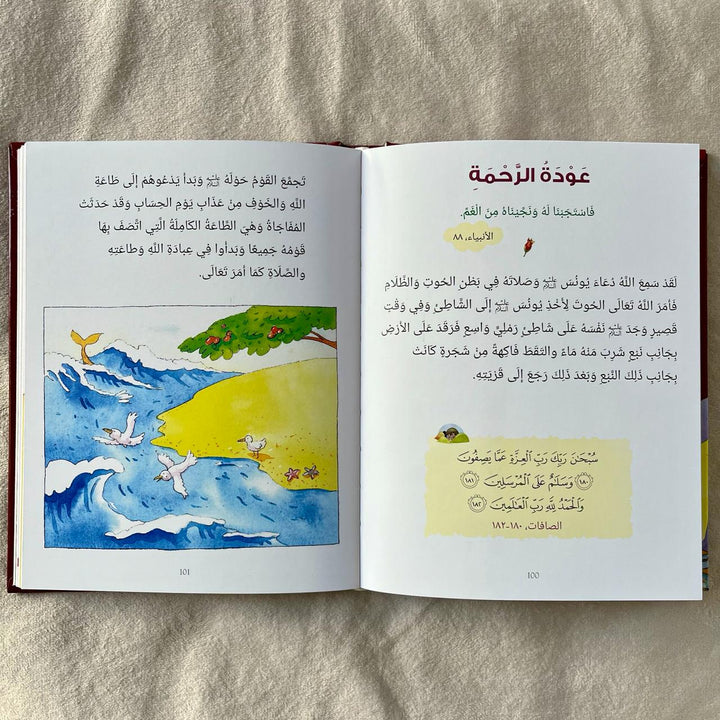 عَوْدَةُ الرَّحْمَةِ
فَاسْتَجَبْنَا لَهُ وَنَجَّيْنَاهُ مِنَ الْغَمِّ.
الأنبياء، ٨٨
لَقَدْ سَمِعَ اللَّهُ دُعَاءَ يُونُسَ وَصَلَاتَهُ فِي بَطْنِ الحُوتِ وَالظَّلَامِ
فَأَمَرَ اللَّهُ تَعَالَى الحُوتَ لِأَخْذِ يُونُسَ إِلَى الشَّاطِئِ وَفِي وَقْتٍ
قَصِيرٍ وَجَدَ نَفْسَهُ عَلَى شَاطِئٍ رَمْلِيٍّ وَاسِعٍ فَرَقَدَ عَلَى الأَرْضِ
بِجَانِبِ نَبْعٍ شَرِبَ مَنْهُ مَاءً وَالتَقَطَ فَاكِهَةً مِنْ شَجَرَةٍ كَانَتْ
بِجَانِبِ ذَلِكَ النَّبْعِ وَبَعْدَ ذَلِكَ رَجَعَ إِلَى قَرْيَتِهِ.
سُبْحَٰنَ رَبِّكَ رَبِّ ٱلْعِزَّةِ عَمَّا يَصِفُونَ
١٨٠ وَسَلَٰمٌ عَلَى ٱلْمُرْسَلِينَ ١٨١
وَٱلْحَمْدُ لِلَّهِ رَبِّ ٱلْعَٰلَمِينَ ١٨٢
الصافات، ١٨٠-١٨٢
100
تَجَمَّعَ القَوْمُ حَوْلَهُ وَبَدَأَ يَدْعُوهُمْ إِلَى طَاعَةِ
اللَّهِ وَالخَوْفِ مِنْ عَذَابِ يَوْمِ الحِسَابِ وَقَدْ حَدَثَتْ
المُفَاجَأَةُ وَهِيَ الطَّاعَةُ الكَامِلَةُ الَّتِي اتَّصَفَ بِهَا
قَوْمُهُ جَمِيعًا وَبَدَأُوا فِي عِبَادَةِ اللَّهِ وَطَاعَتِهِ
وَالصَّلَاةِ كَمَا أَمَرَ تَعَالَى.
101